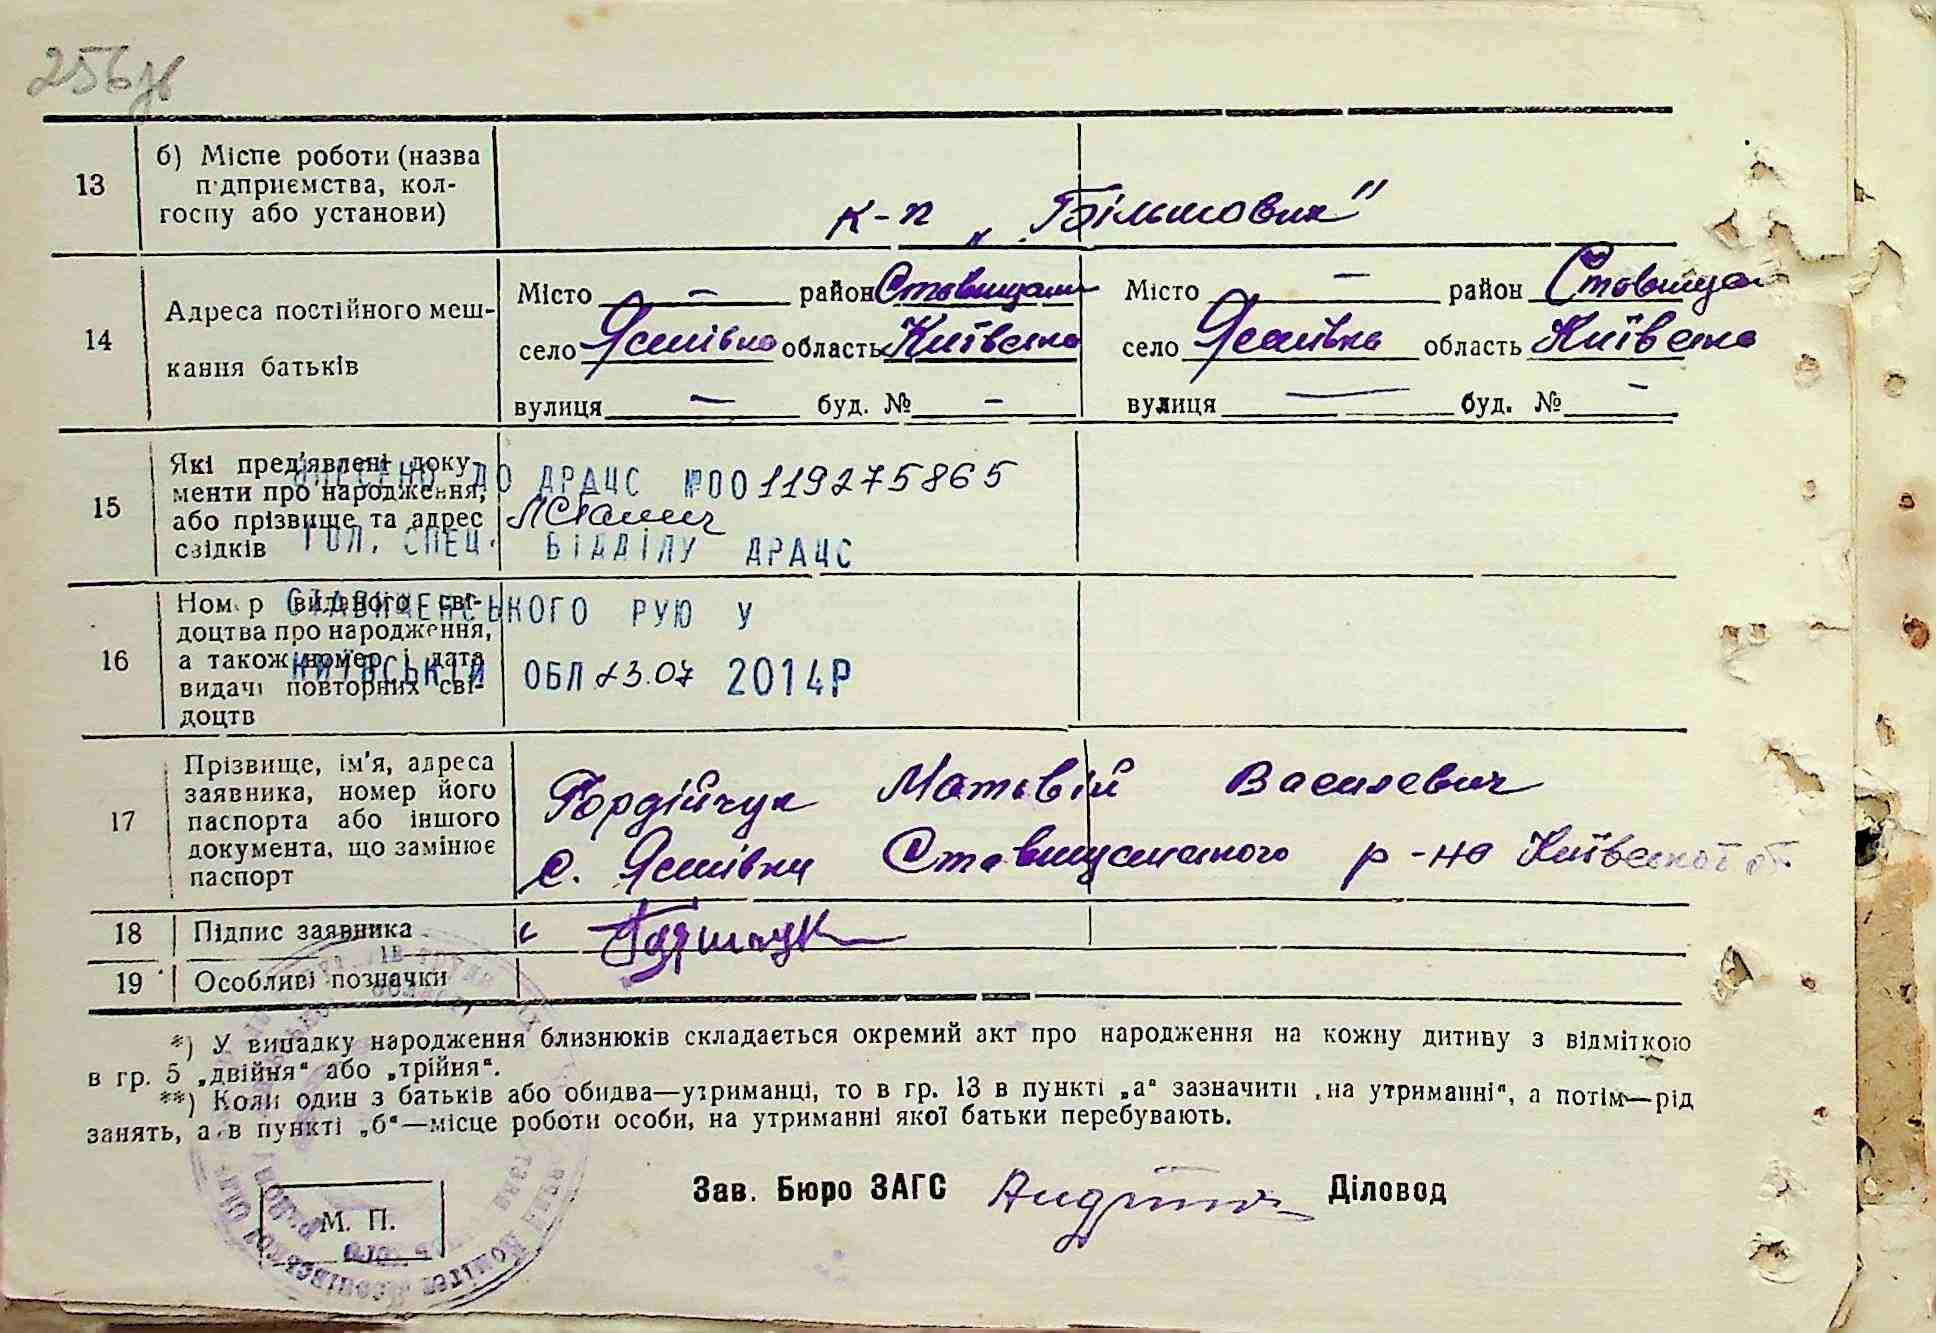 256зв
13 б) Місце роботи (назва
підприємства, кол-
госпу або установи)
к-п „Більшовик"
14 Адреса постійного меш-
кання батьків
Місто — район Ставищан
село Ясинівка область Київська
вулиця — буд. № —
Місто — район Ставищан
село Ясинівка область Київська
вулиця — буд. № —
15 Які пред'явлені доку-
менти про народження,
або прізвище та адрес
свідків
ВНЕСЕНО ДО ДРАЦС №00119275865
ГОЛ. СПЕЦ. ВІДДІЛУ ДРАЦС
СТАВИЩЕНСЬКОГО РУЮ У
КИЇВСЬКІЙ ОБЛ 23.07 2014Р
16 Номер виданого сві-
доцтва про народження,
а також номер і дата
видачі повторних сві-
доцтв
17 Прізвище, ім'я, адреса
заявника, номер його
паспорта або іншого
документа, що замінює
паспорт
Гордійчук Матвій Василевич
с. Ясинівка Ставищанського р-на Київської об
18 Підпис заявника
19 Особливі позначки
*) У випадку народження близнюків складається окремий акт про народження на кожну дитину з відміткою
в гр. 5 „двійня" або „трійня".
**) Коли один з батьків або обидва—утриманці, то в гр. 13 в пункті „а" зазначити „на утриманні", а потім—рід
занять, а в пункті „б"—місце роботи особи, на утриманні якої батьки перебувають.
Зав. Бюро ЗАГС Діловод
М. П.